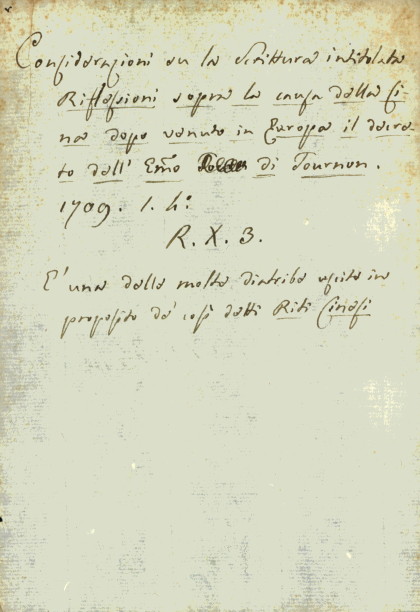 Considerazioni su la Scrittura intitolata
Riflessioni sopra la causa della Ci-
na dopo venuto in Europa il decre-
to dell' Emo di Tournon.
1709. 1. h:
R. X. 3.
E' una delle molte diatribe uscite in
proposito de' così detti Riti Cinesi